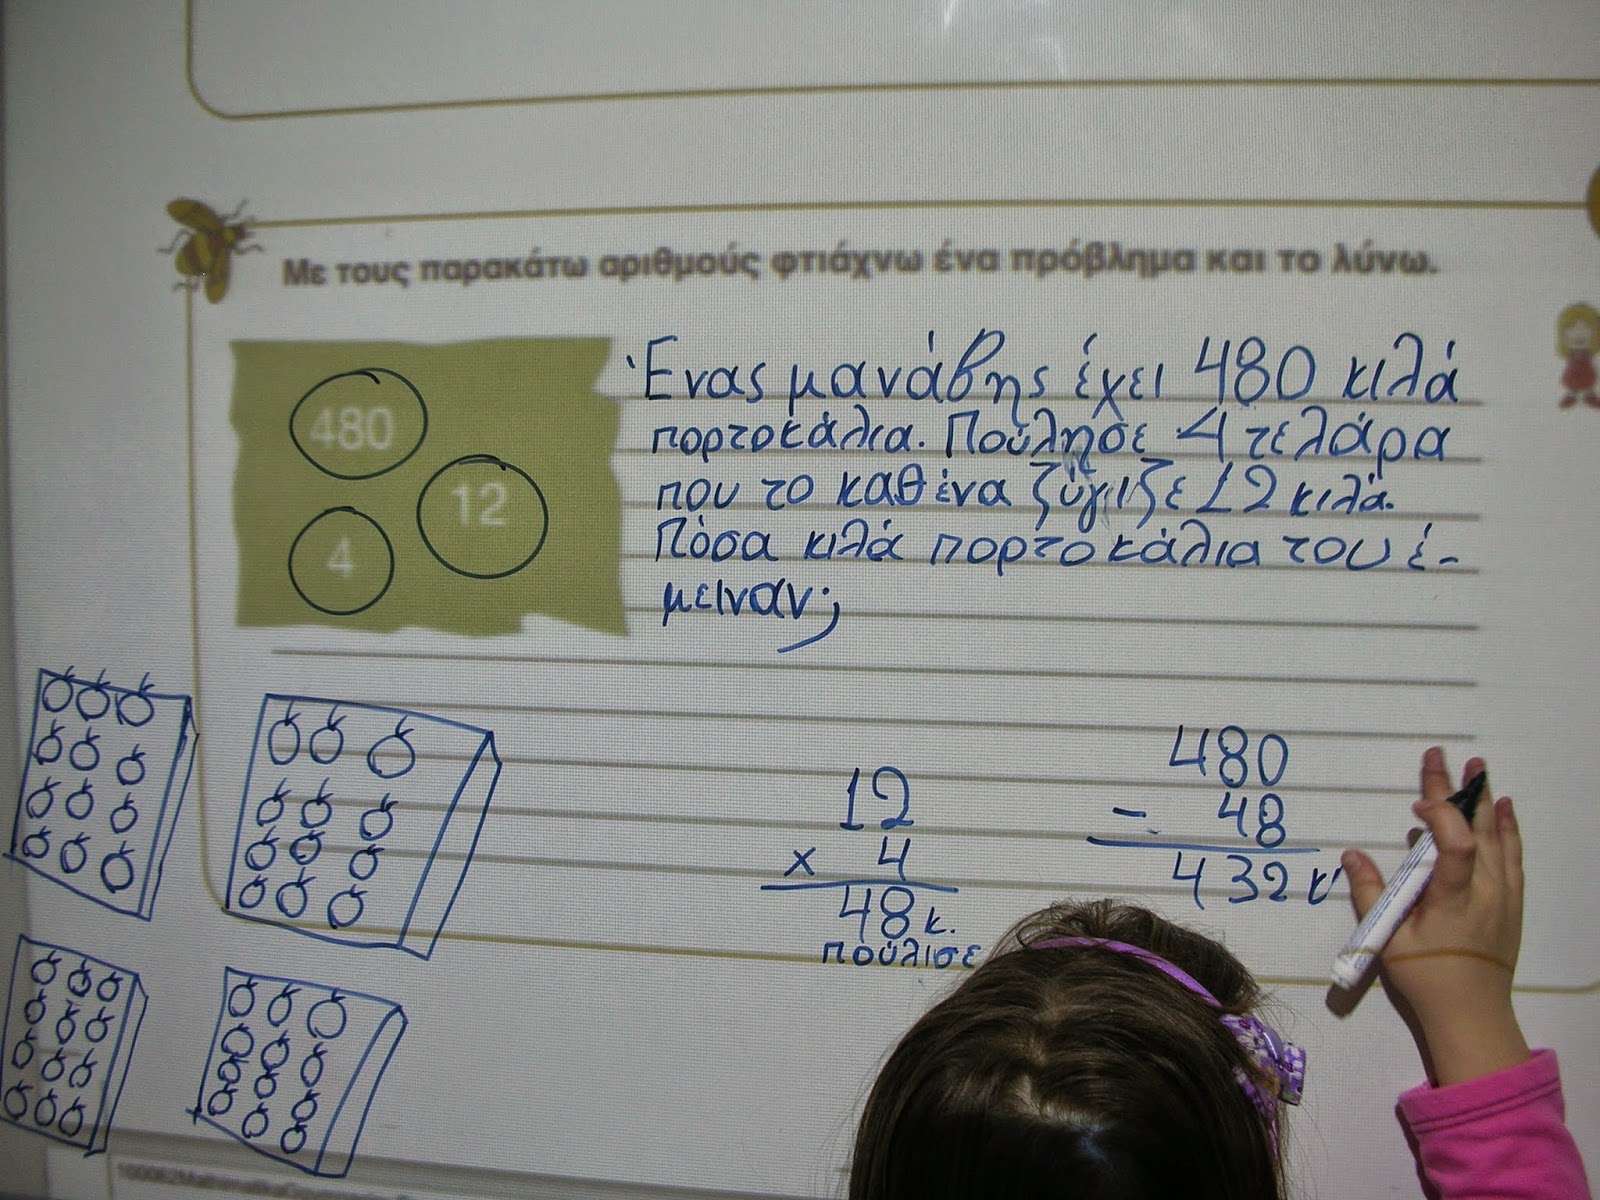 Με τους παρακάτω αριθμούς φτιάχνω ένα πρόβλημα και το λύνω.
480
12
4
Ένας μανάβης έχει 480 κιλά
πορτοκάλια. Πούλησε 4 τελάρα
που το καθένα ζύγιζε 12 κιλά.
Πόσα κιλά πορτοκάλια του έ-
μειναν;
12
x 4
48 κ.
πούλισε
480
- 48
432 κ